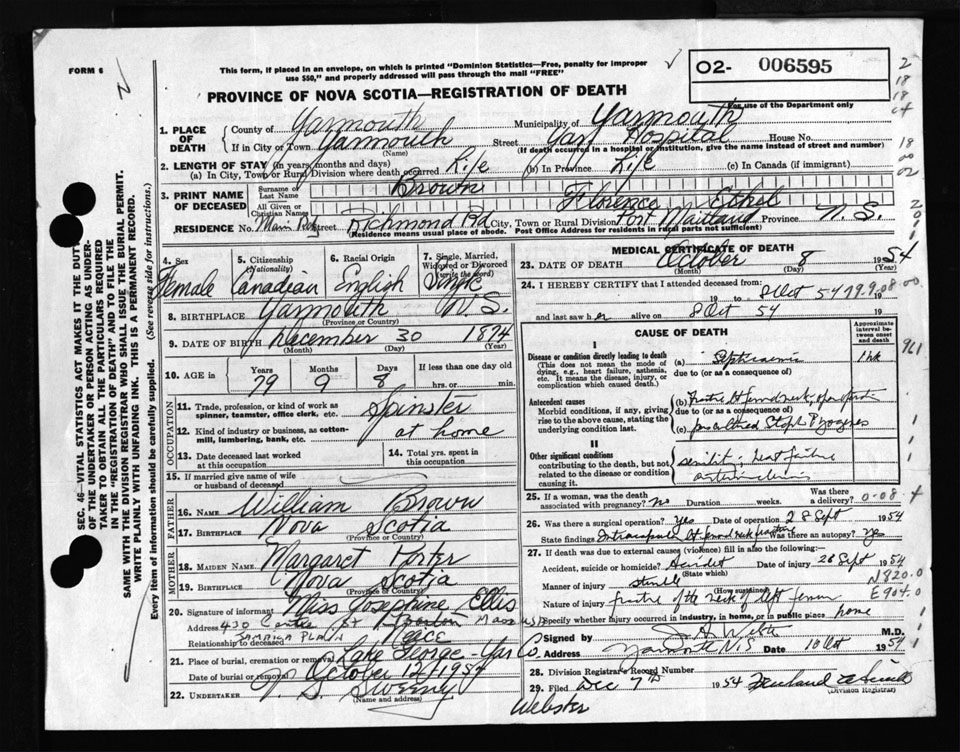 FORM 6
This form, if placed in an envelope, on which is printed "Dominion Statistics—Free, penalty for improper
use $50," and properly addressed will pass through the mail "FREE"
O2- 006595
For use of the Department only
PROVINCE OF NOVA SCOTIA—REGISTRATION OF DEATH
1. PLACE OF DEATH County of Yarmouth Municipality of Yarmouth
If in City or Town Yarmouth (Name) Street Yar Hospital House No.
(If death occurred in a hospital or institution, give the name instead of street and number)
2. LENGTH OF STAY (in years months and days)
(a) In City, Town or Rural Division where death occurred Life (b) In Province Life (c) In Canada (if immigrant)
3. PRINT NAME OF DECEASED Surname or Last Name Brown
All Given or Christian Names Florence Ethel
RESIDENCE No. Main Rd Street Richmond Rd City, Town or Rural Division Port Maitland Province N.S.
(Residence means usual place of abode. Post Office Address for residents in rural parts not sufficient)
4. Sex Female
5. Citizenship (Nationality) Canadian
6. Racial Origin English
7. Single, Married, Widowed or Divorced (write the word) Single
8. BIRTHPLACE Yarmouth N.S.
(Province or Country)
9. DATE OF BIRTH December 30 1874
(Month) (Day) (Year)
10. AGE in Years 79 Months 9 Days 8 If less than one day old hrs. or min.
OCCUPATION
11. Trade, profession, or kind of work as spinner, teamster, office clerk, etc. Spinster
12. Kind of industry or business, as cotton-mill, lumbering, bank, etc. at home
13. Date deceased last worked at this occupation
14. Total yrs. spent in this occupation
15. If married give name of wife or husband of deceased
FATHER
16. NAME William Brown
17. BIRTHPLACE Nova Scotia
(Province or Country)
MOTHER
18. MAIDEN NAME Margaret Porter
19. BIRTHPLACE Nova Scotia
(Province or Country)
20. Signature of informant Miss Josephine Ellis
Address 430 Centre St Boston Mass USA
JAMAICA PLAIN
Relationship to deceased Neice
21. Place of burial, cremation or removal Lake George - Yar Co.
Date of burial or removal October 12, 1954
22. UNDERTAKER S. Sweeny
(Name and address)
MEDICAL CERTIFICATE OF DEATH
23. DATE OF DEATH October 8 1954
(Month) (Day) (Year)
24. I HEREBY CERTIFY that I attended deceased from
19 to 8 Oct 54 19
and last saw her alive on 8 Oct 54 19
CAUSE OF DEATH
Approximate interval between onset and death
I
Disease or condition directly leading to death (a) Septicaemia 1 wk
(This does not mean the mode of dying, e.g., heart failure, asthenia, etc. It means the disease, injury, or complication which caused death.)
due to (or as a consequence of)
Antecedent causes
Morbid conditions, if any, giving rise to the above cause, stating the underlying condition last.
(b)
due to (or as a consequence of)
(c) Staph Pyogenes
II
Other significant conditions
contributing to the death, but not related to the disease or condition causing it
senility; heart failure
25. If a woman, was the death associated with pregnancy? no Duration weeks. Was there a delivery?
0-08
26. Was there a surgical operation? Yes Date of operation 28 Sept 1954
State findings Was there an autopsy? no
27. If death was due to external causes (violence) fill in also the following:—
Accident, suicide or homicide? Accident Date of injury 26 Sept 1954
(State which)
Manner of injury
(How sustained)
N820.0
Nature of injury fracture of the neck of left femur
E904.0
Specify whether injury occurred in industry, in home, or in public place home
Signed by M.D.
Address Yarmouth N.S Date 10 Oct 1954
28. Division Registrar's Record Number
29. Filed Dec 7th 1954
(Division Registrar)
Webster
SEC. 46—VITAL STATISTICS ACT MAKES IT THE DUTY
OF THE UNDERTAKER OR PERSON ACTING AS UNDER-
TAKER TO OBTAIN ALL THE PARTICULARS REQUIRED
IN THE "REGISTRATION OF DEATH" AND TO FILE THE
SAME WITH THE DIVISION REGISTRAR WHO SHALL ISSUE THE BURIAL PERMIT.
WRITE PLAINLY WITH UNFADING INK. THIS IS A PERMANENT RECORD.
Every item of information should be carefully supplied. (See reverse side for instructions.)